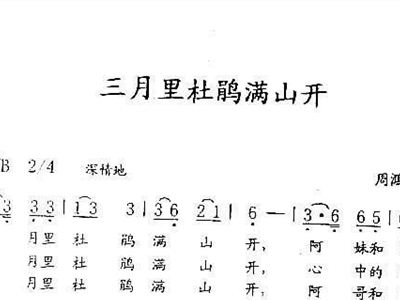 三月里杜鹃满山开
B 2/4 深情地
周鸿
3 3 3 | 1 3 3 | 3 6 2 1 | 6 — | 3 · 6 6 5 |
月里杜 鹃满 山 开, 阿 妹和
月里杜 鹃满 山 开, 心 中的
月里杜 鹃满 山 开, 阿 哥和